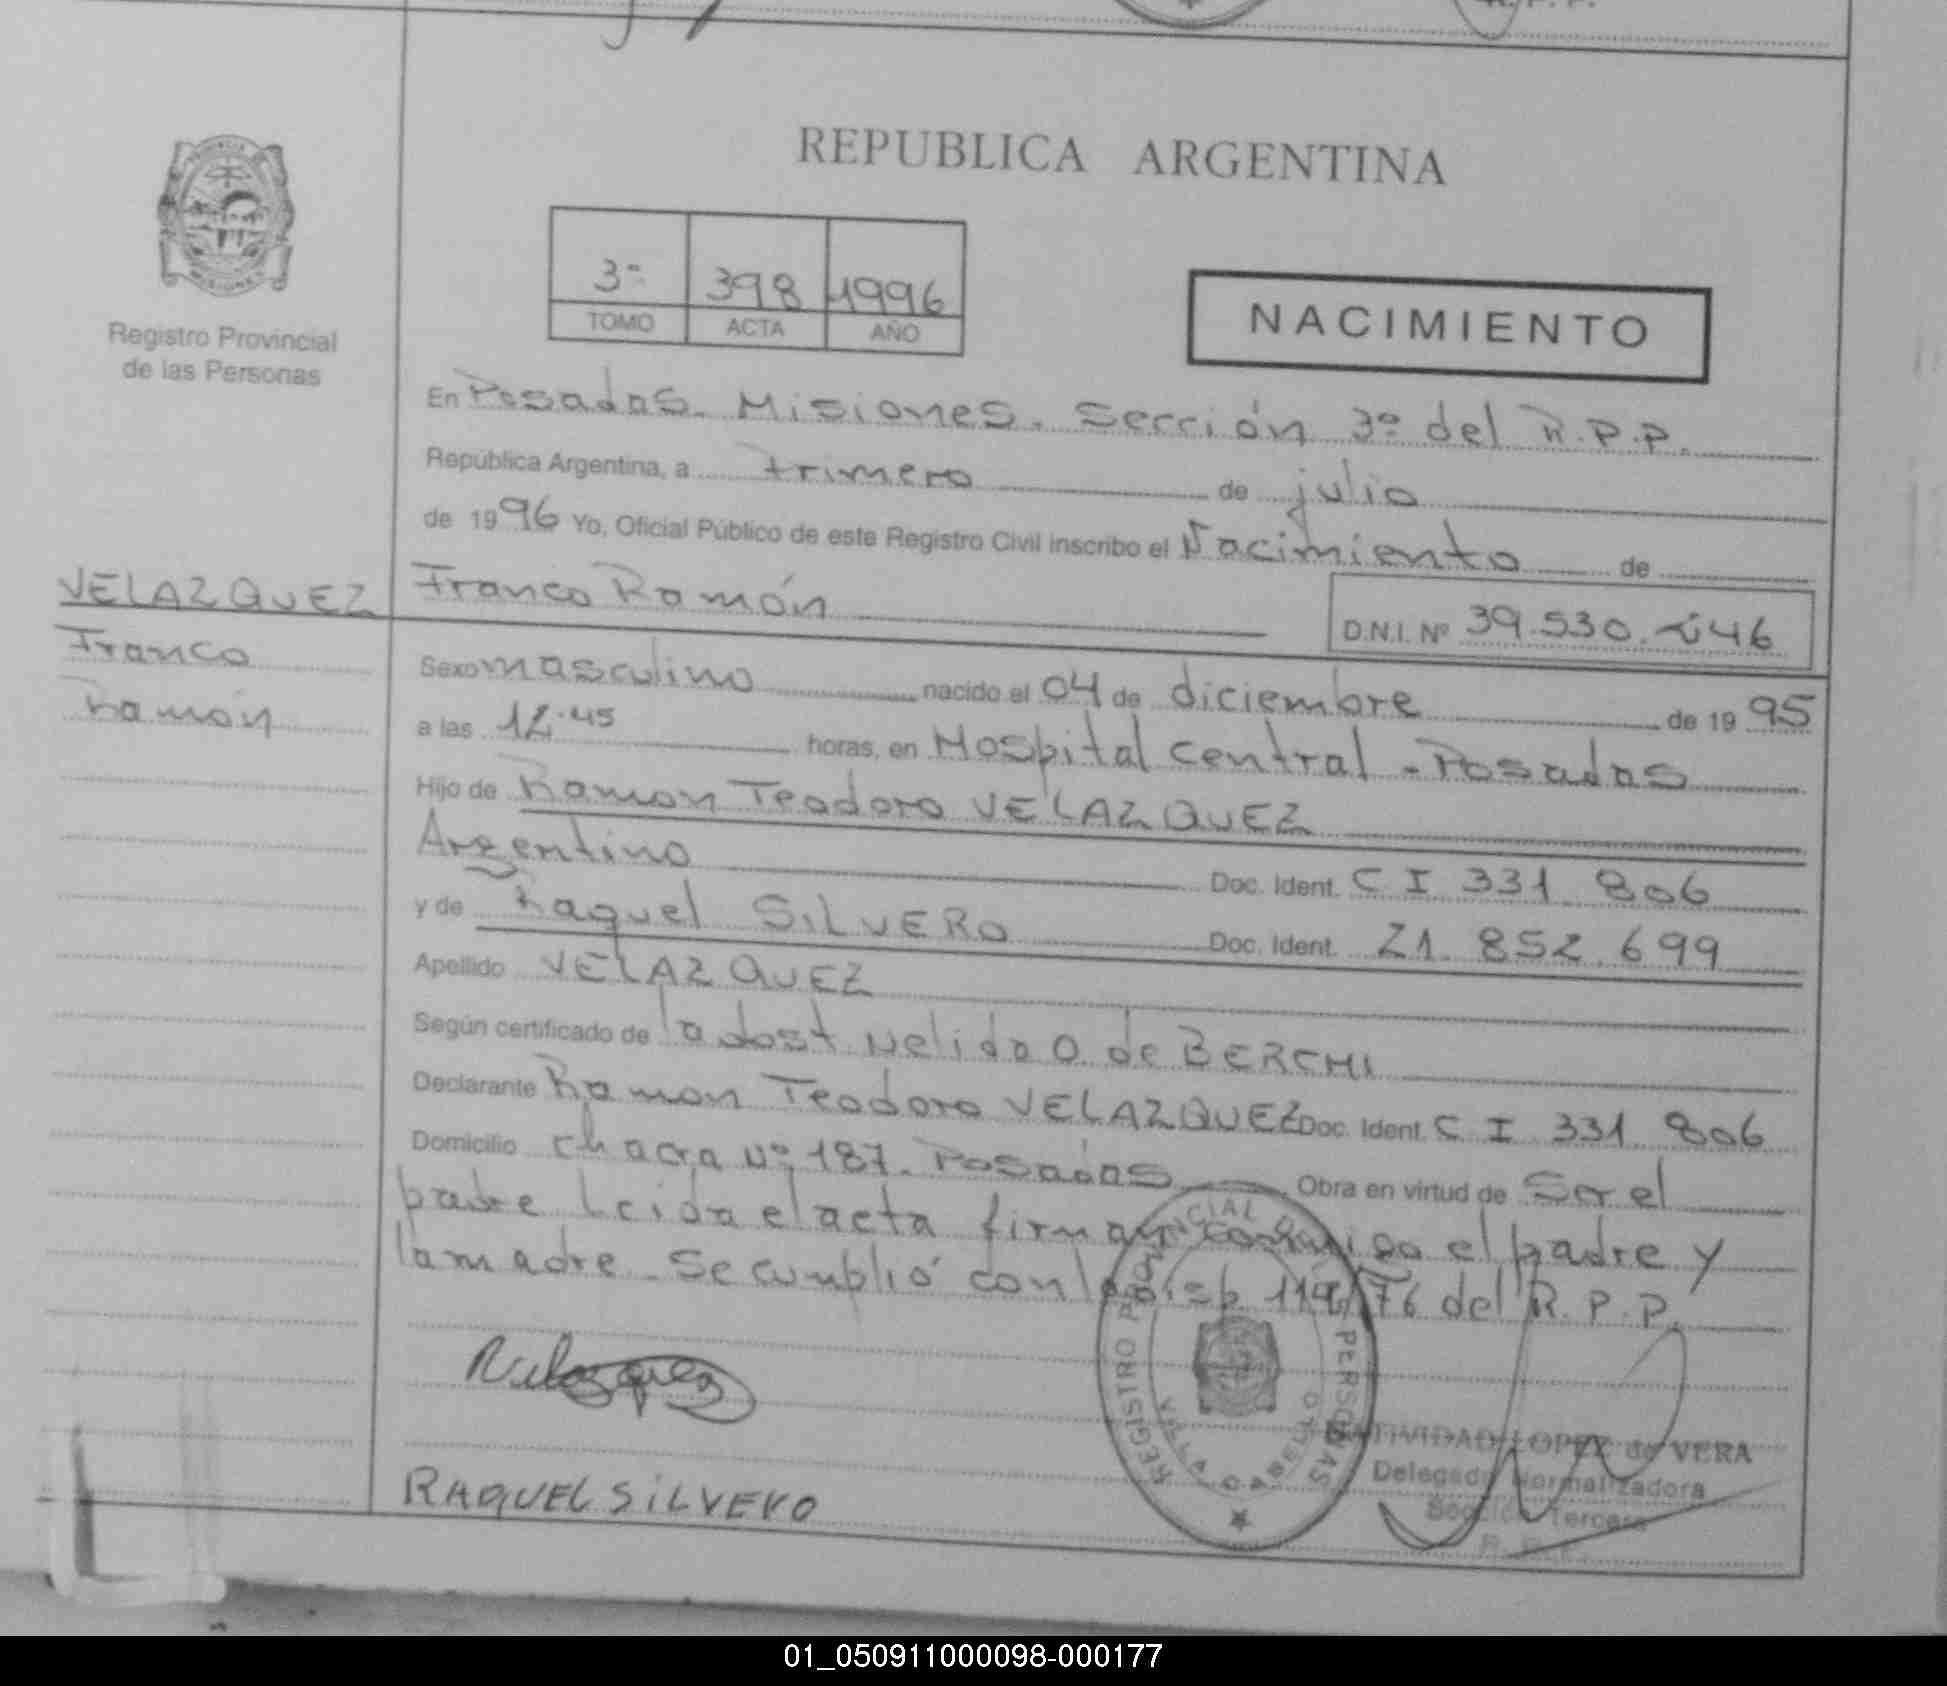 REPUBLICA ARGENTINA
3ª 398 1996
TOMO ACTA AÑO
NACIMIENTO
Registro Provincial
de las Personas
En Posadas. Misiones. Sección 3ª del R.P.P.
República Argentina, a primero de julio
de 1996 Yo, Oficial Público de este Registro Civil inscribo el Nacimiento de
VELAZQUEZ
Franco
Ramón
Franco Ramón
D.N.I. Nº 39.530.246
Sexo masculino nacido el 04 de diciembre de 1995
a las 12.45 horas, en Hospital Central - Posadas
Hijo de Ramon Teodoro VELAZQUEZ
Argentino Doc. Ident. C I 331 806
y de Raquel SILVERO Doc. Ident. 21.852.699
Apellido VELAZQUEZ
Según certificado de la obst Nelida O. de BERCHI
Declarante Ramon Teodoro VELAZQUEZ Doc. Ident. C I 331 806
Domicilio chacra Nº 187. Posadas Obra en virtud de Ser el
padre Leida el acta firman conmigo el padre y
la madre. Se cumplió con la disp 114/76 del R.P.P.
RAQUEL SILVERO
REGISTRO PROVINCIAL DE PERSONAS
VILLA CABELLO
NATIVIDAD LOPEZ de VERA
Delegada Normalizadora
Sección Tercera
01_050911000098-000177